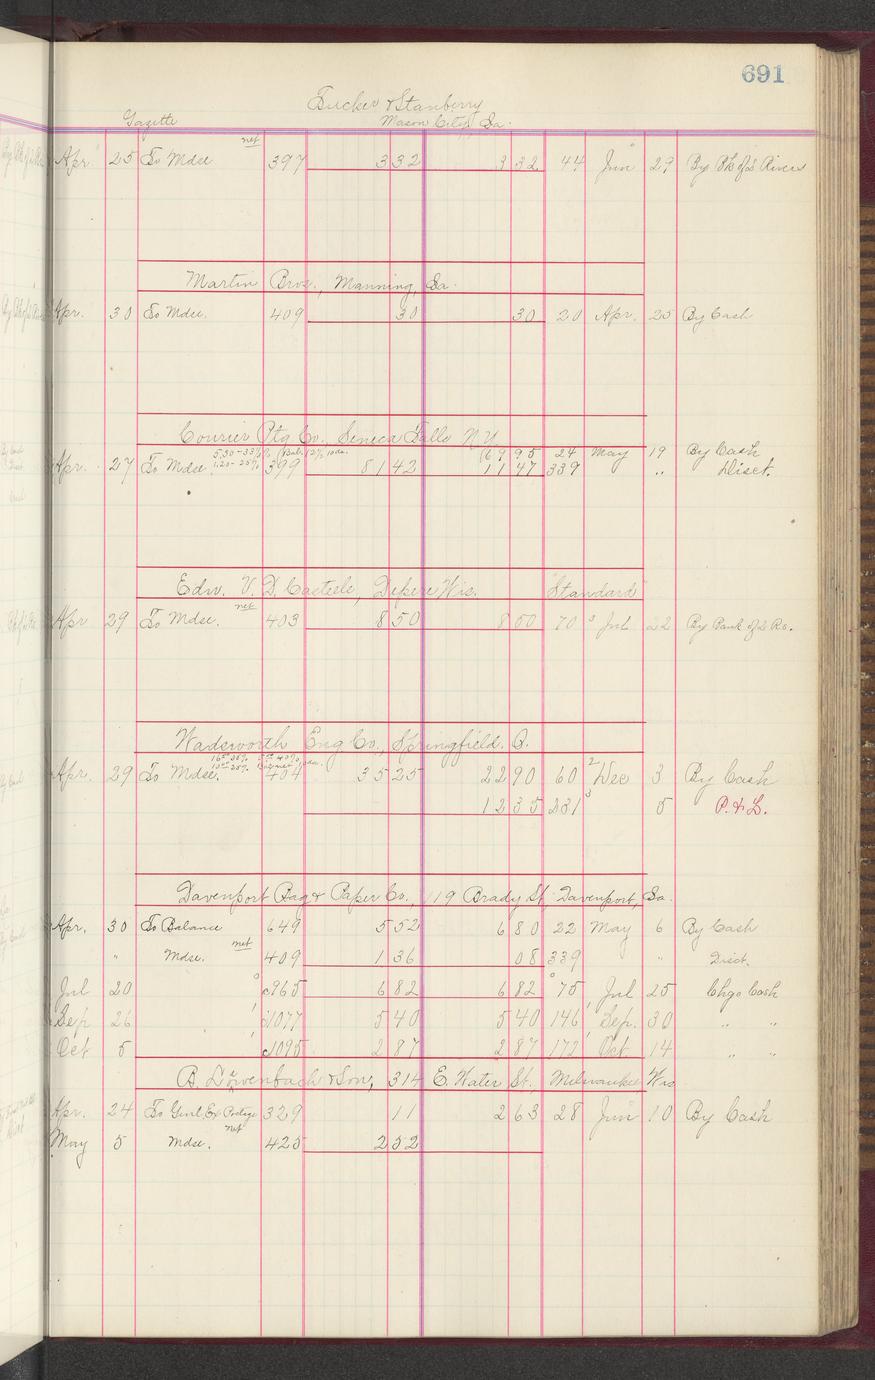 691
Tucker & Stanberry
Gazette Mason City, Ia.
Apr 25 To Mdse net 397 3 32 3 32 44 Jun 29 By Bk of 2 Rivers
Martin Bros., Manning, Ia.
Apr. 30 To Mdse. 409 30 30 20 Apr. 25 By Cash
Courier Ptg Co., Seneca Falls N.Y.
5.30-33⅓% (Bal. 12% 10 ds. 69 95 24 May 19 By Cash
Apr. 27 To Mdse 1.20-25% 399 81 42 11 47 339 " Disct.
Edw. V. D. Casteele, Depere Wis. "Standard"
Apr 29 To Mdse. net 403 8 50 8 50 70 Jul 22 By Bank of 2 Rs.
Wadsworth Eng Co., Springfield. O.
Apr. 29 To Mdse. 404 35 25 22 90 60 Dec 3 By Cash
12 35 231 5 P. & L.
Davenport Bag & Paper Co., 119 Brady St. Davenport, Ia.
Apr. 30 To Balance 649 5 52 6 80 22 May 6 By Cash
" Mdse. net 409 1 36 08 339 " Disct.
Jul 20 c965 6 82 6 82 75 Jul 25 Chgo Cash
Sep 26 c1077 5 40 5 40 146 Sep. 30 " "
Oct 5 c1095 2 87 2 87 172 Oct. 14 " "
B. Lövenbach & Son, 314 E. Water St. Milwaukee Wis
Apr. 24 To Genl. Ex Postge 329 11 2 63 28 Jun 10 By Cash
May 5 Mdse. net 425 2 52